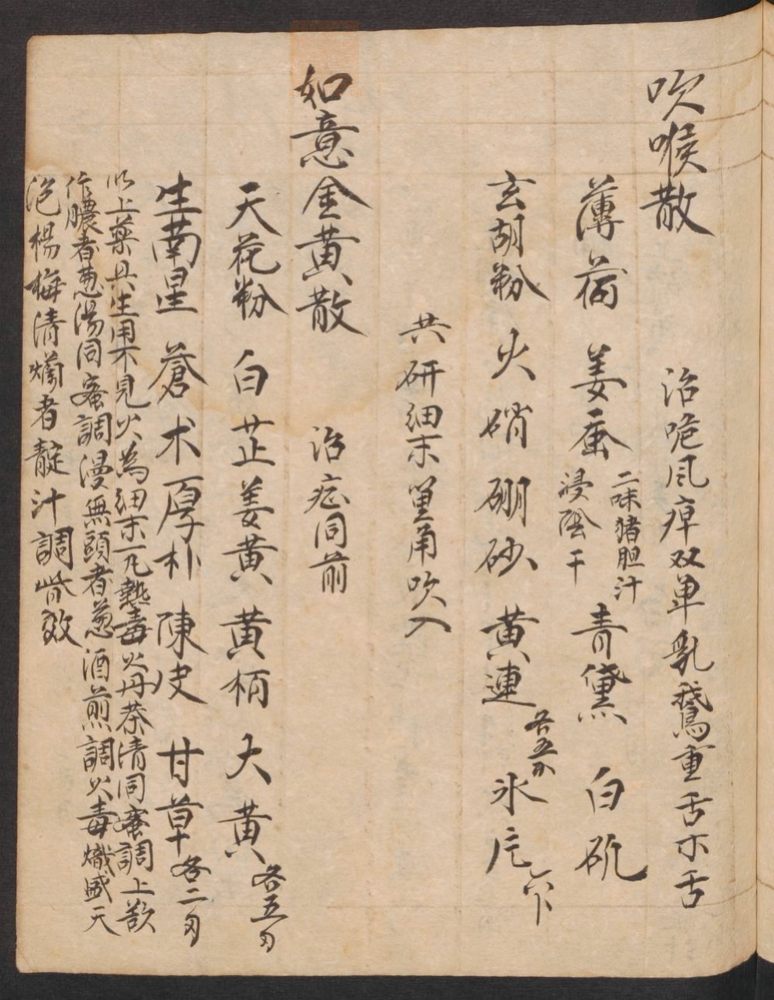 吹喉散
治咙风痺双单乳鵞重舌木舌
薄荷 姜蚕 二味猪胆汁浸陰干 青黛 白矾
玄胡粉 火硝 硼砂 黄連 各五分 氷片
共研细末筆角吹入
如意金黄散
治症同前
天花粉 白芷 姜黄 黄柏 大黄 各五匁
生南星 蒼术 厚朴 陳皮 甘草 各二匁
以上藥共生用不見火為细末一凡熱毒火丹茶清同蜜調上欲
作膿者葱湯同蜜調漫無頭者葱酒煎調火毒熾盛天
泡楊梅清爛者靛汁調皆效